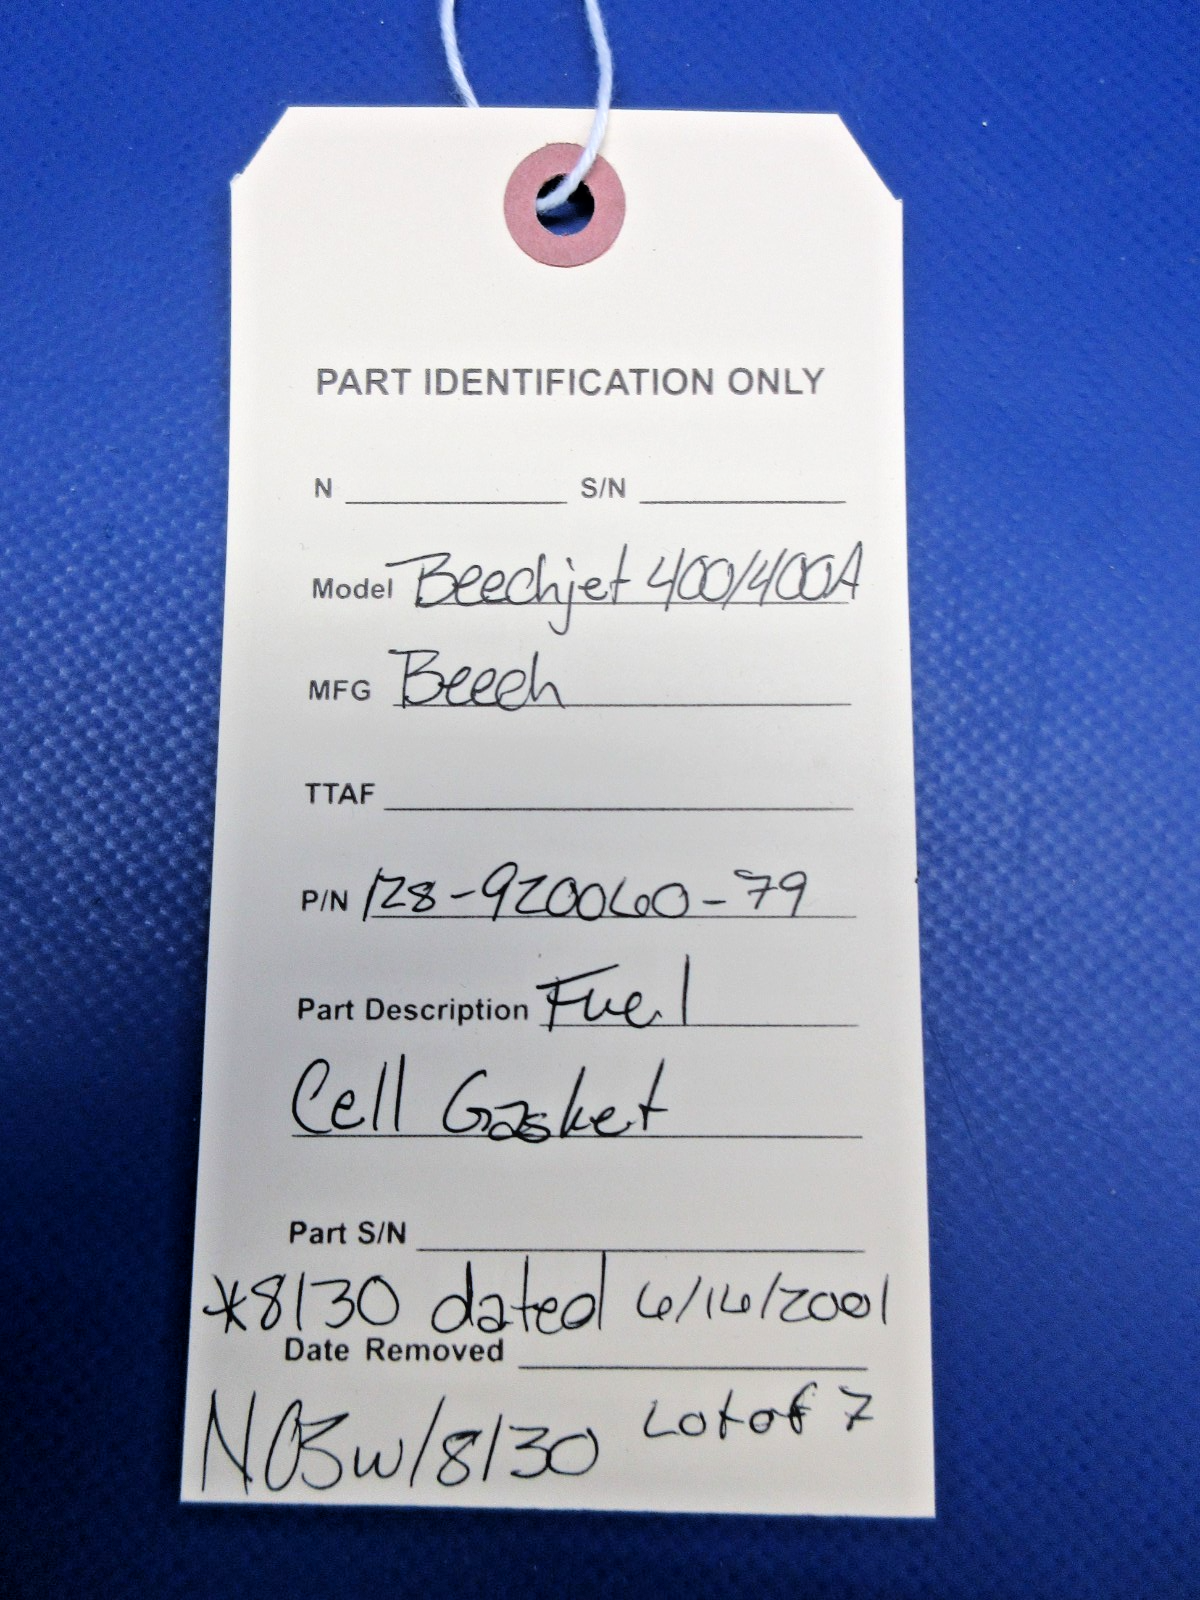 PART IDENTIFICATION ONLY
N S/N
Model Beechjet 400/400A
MFG Beech
TTAF
P/N 128-920060-79
Part Description Fuel
Cell Gasket
Part S/N
*8130 dated 6/16/2001
Date Removed
NOS w/8130 Lot of 7